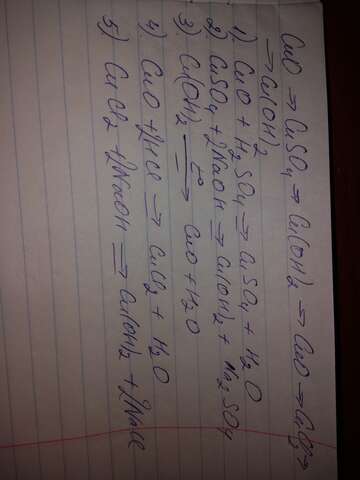 CuO → CuSO₄ → Cu(OH)₂ → CuO → CuCl₂ →
→ Cu(OH)₂
1) CuO + H₂SO₄ → CuSO₄ + H₂O
2) CuSO₄ + 2NaOH → Cu(OH)₂ + Na₂SO₄
3) Cu(OH)₂ t° → CuO + H₂O
4) CuO + 2HCl → CuCl₂ + H₂O
5) CuCl₂ + 2NaOH → Cu(OH)₂ + 2NaCl